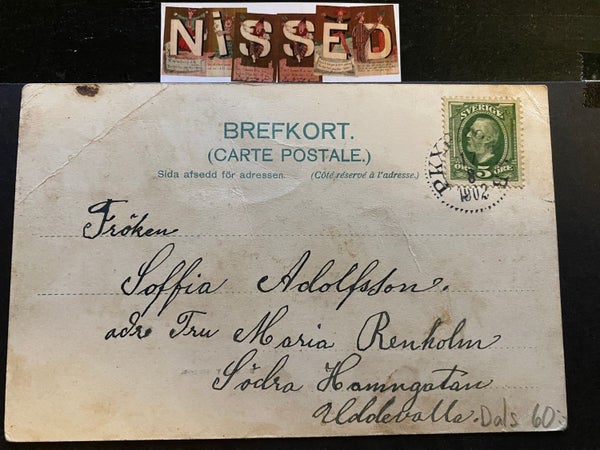 NiSSED
BREFKORT.
(CARTE POSTALE.)
Sida afsedd för adressen. (Côté réservé à l'adresse.)
SVERIGE
5 ÖRE
PKXP
1902
Fröken
Soffia Adolfsson.
adr Fru Maria Renholm
Södra Hamngatan
Uddevalla. Dals 60:-